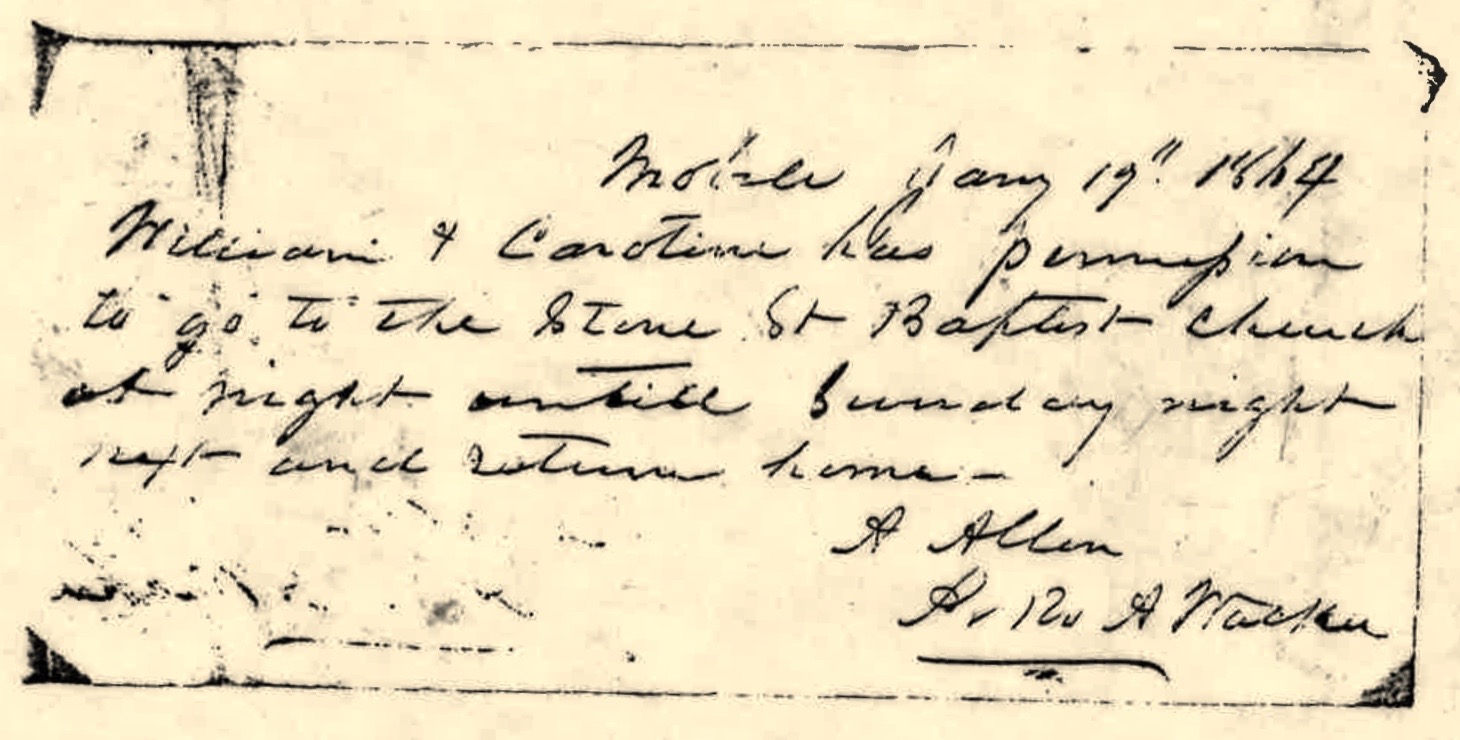 Mobile Jany 19" 1864
William & Caroline has permission
to go to the Stone St Baptist Church
at night untill Sunday night
next and return home -
A Allen
Pr A Walker